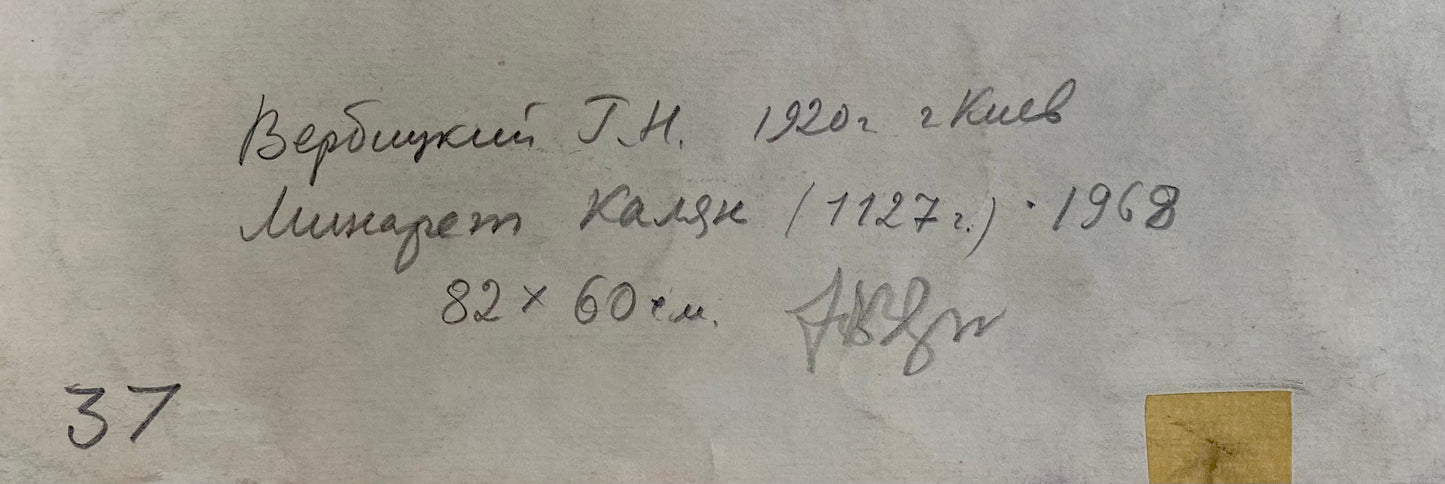 Вербицкий Г.Н. 1920г г Киев
Минарет Калян (1127 г.) · 1968
82 × 60 см.
37